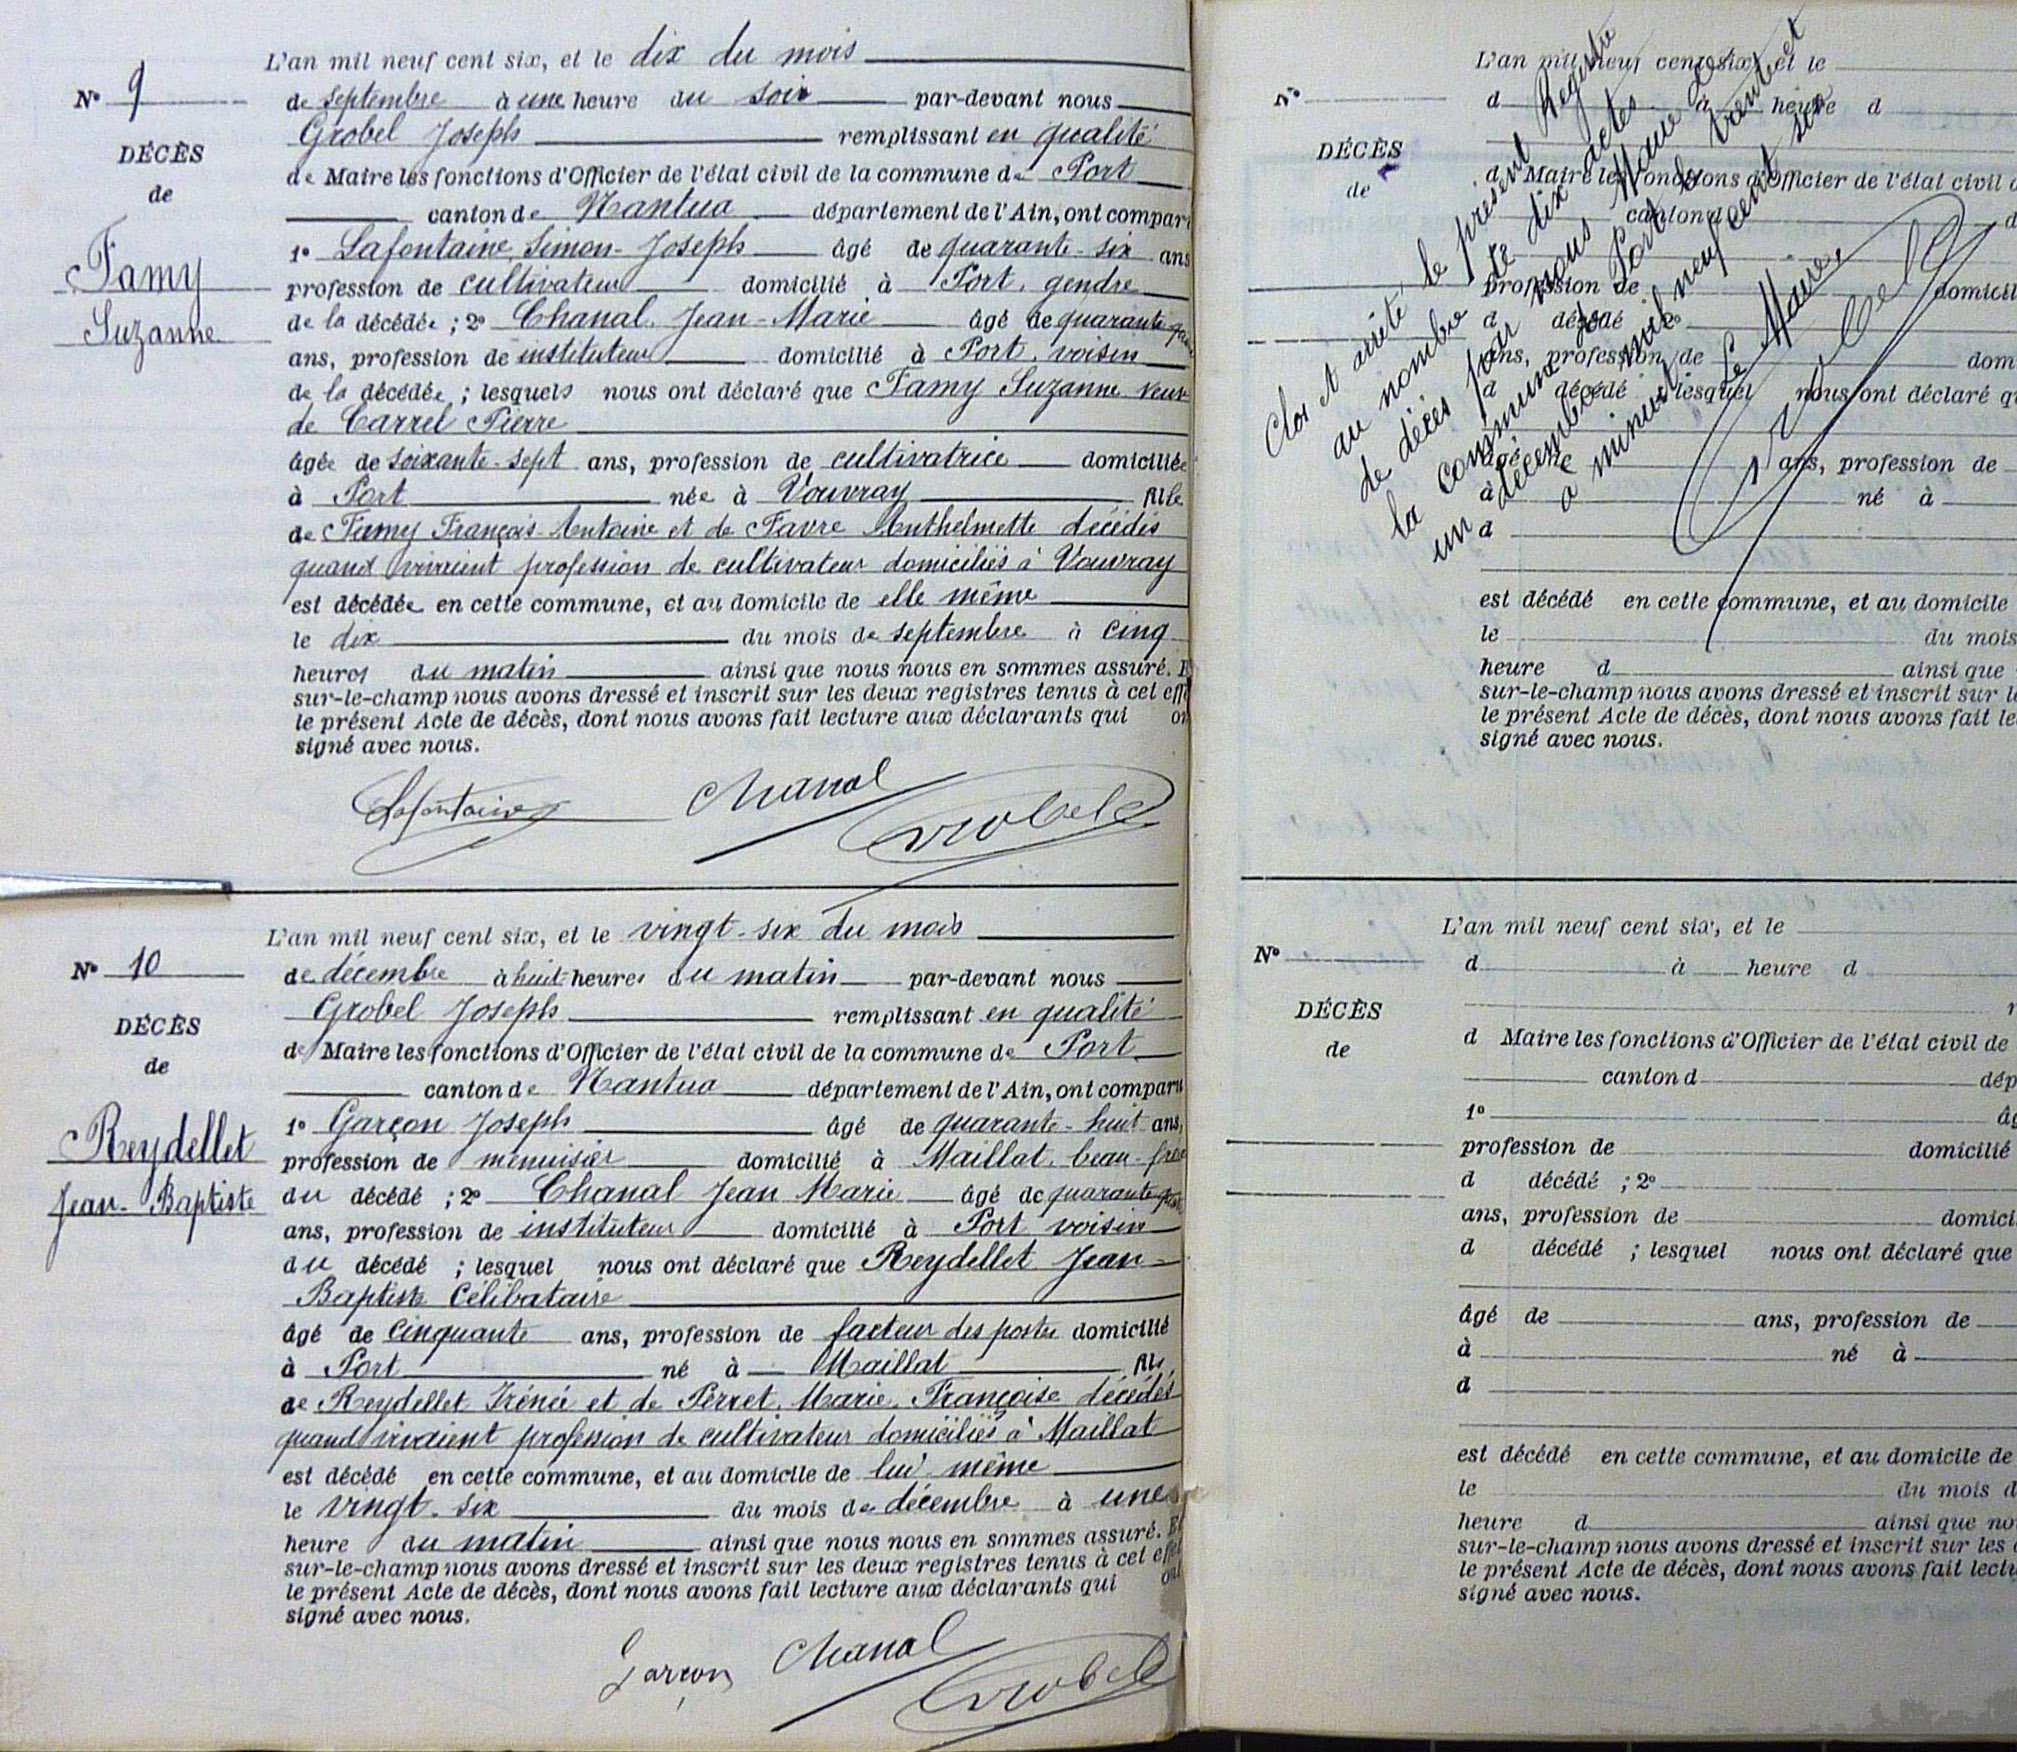 L'an mil neuf cent six, et le dix du mois
N° 9
de septembre à une heure du soir par-devant nous
Grobel Joseph remplissant en qualité
DÉCÈS
de Maire les fonctions d'Officier de l'état civil de la commune de Port
de
canton de Nantua département de l'Ain, ont compar
Famy
Suzanne
1° Lafontaine, Simon-Joseph âgé de quarante-six ans
profession de cultivateur domicilié à Port, gendre
de la décédée ; 2° Chanal, Jean-Marie âgé de quarante
ans, profession de instituteur domicilié à Port, voisin
de la décédée ; lesquels nous ont déclaré que Famy Suzanne veuve
de Carrel Pierre
âgée de soixante-sept ans, profession de cultivatrice domiciliée
à Port née à Vouvray fille
de Famy François-Antoine et de Favre Anthelmette décédés
quand vivaient profession de cultivateur domiciliés à Vouvray
est décédée en cette commune, et au domicile de elle même
le dix du mois de septembre à cinq
heures du matin ainsi que nous nous en sommes assuré. E
sur-le-champ nous avons dressé et inscrit sur les deux registres tenus à cet effe
le présent Acte de décès, dont nous avons fait lecture aux déclarants qui on
signé avec nous.
Lafontaine Chanal Grobel
L'an mil neuf cent six, et le vingt-six du mois
N° 10
de décembre à huit heures du matin par-devant nous
Grobel Joseph remplissant en qualité
DÉCÈS
de Maire les fonctions d'Officier de l'état civil de la commune de Port
de
canton de Nantua département de l'Ain, ont comparu
Reydellet
Jean-Baptiste
1° Garçon Joseph âgé de quarante-huit ans,
profession de menuisier domicilié à Maillat, beau-frère
du décédé ; 2° Chanal Jean Marie âgé de quarante
ans, profession de instituteur domicilié à Port voisin
du décédé ; lesquel nous ont déclaré que Reydellet Jean-
Baptiste Célibataire
âgé de cinquante ans, profession de facteur des postes domicilié
à Port né à Maillat fils
de Reydellet Irénée et de Perret, Marie, Françoise décédés
quand vivaient profession de cultivateur domiciliés à Maillat
est décédé en cette commune, et au domicile de lui même
le vingt-six du mois de décembre à une
heure du matin ainsi que nous nous en sommes assuré. Et
sur-le-champ nous avons dressé et inscrit sur les deux registres tenus à cet effet
le présent Acte de décès, dont nous avons fait lecture aux déclarants qui ont
signé avec nous.
Garçon Chanal Grobel
L'an mil neuf cent six, et le
N°
d à heure d
DÉCÈS
d Maire les fonctions d'Officier de l'état civil d
de
canton d d
profession de domicil
d décédé 2°
ans, profession de dom
d décédé lesquel nous ont déclaré qu
âgé de ans, profession de
à né à
d
est décédé en cette commune, et au domicile
le du mois
heure d ainsi que
sur-le-champ nous avons dressé et inscrit sur le
le présent Acte de décès, dont nous avons fait le
signé avec nous.
Clos et arrêté le présent Registre
au nombre de dix actes
de décès par nous Maire de
la commune de Port le trente et
un décembre mil neuf cent six
à minuit
Le Maire,
Grobel
L'an mil neuf cent six, et le
N°
d à heure d
r
DÉCÈS
d Maire les fonctions d'Officier de l'état civil de
de
canton d dép
1° âg
profession de domicilié
d décédé ; 2°
ans, profession de domici
d décédé ; lesquel nous ont déclaré que
âgé de ans, profession de
à né à
d
est décédé en cette commune, et au domicile de
le du mois d
heure d ainsi que no
sur-le-champ nous avons dressé et inscrit sur les
le présent Acte de décès, dont nous avons fait lectu
signé avec nous.